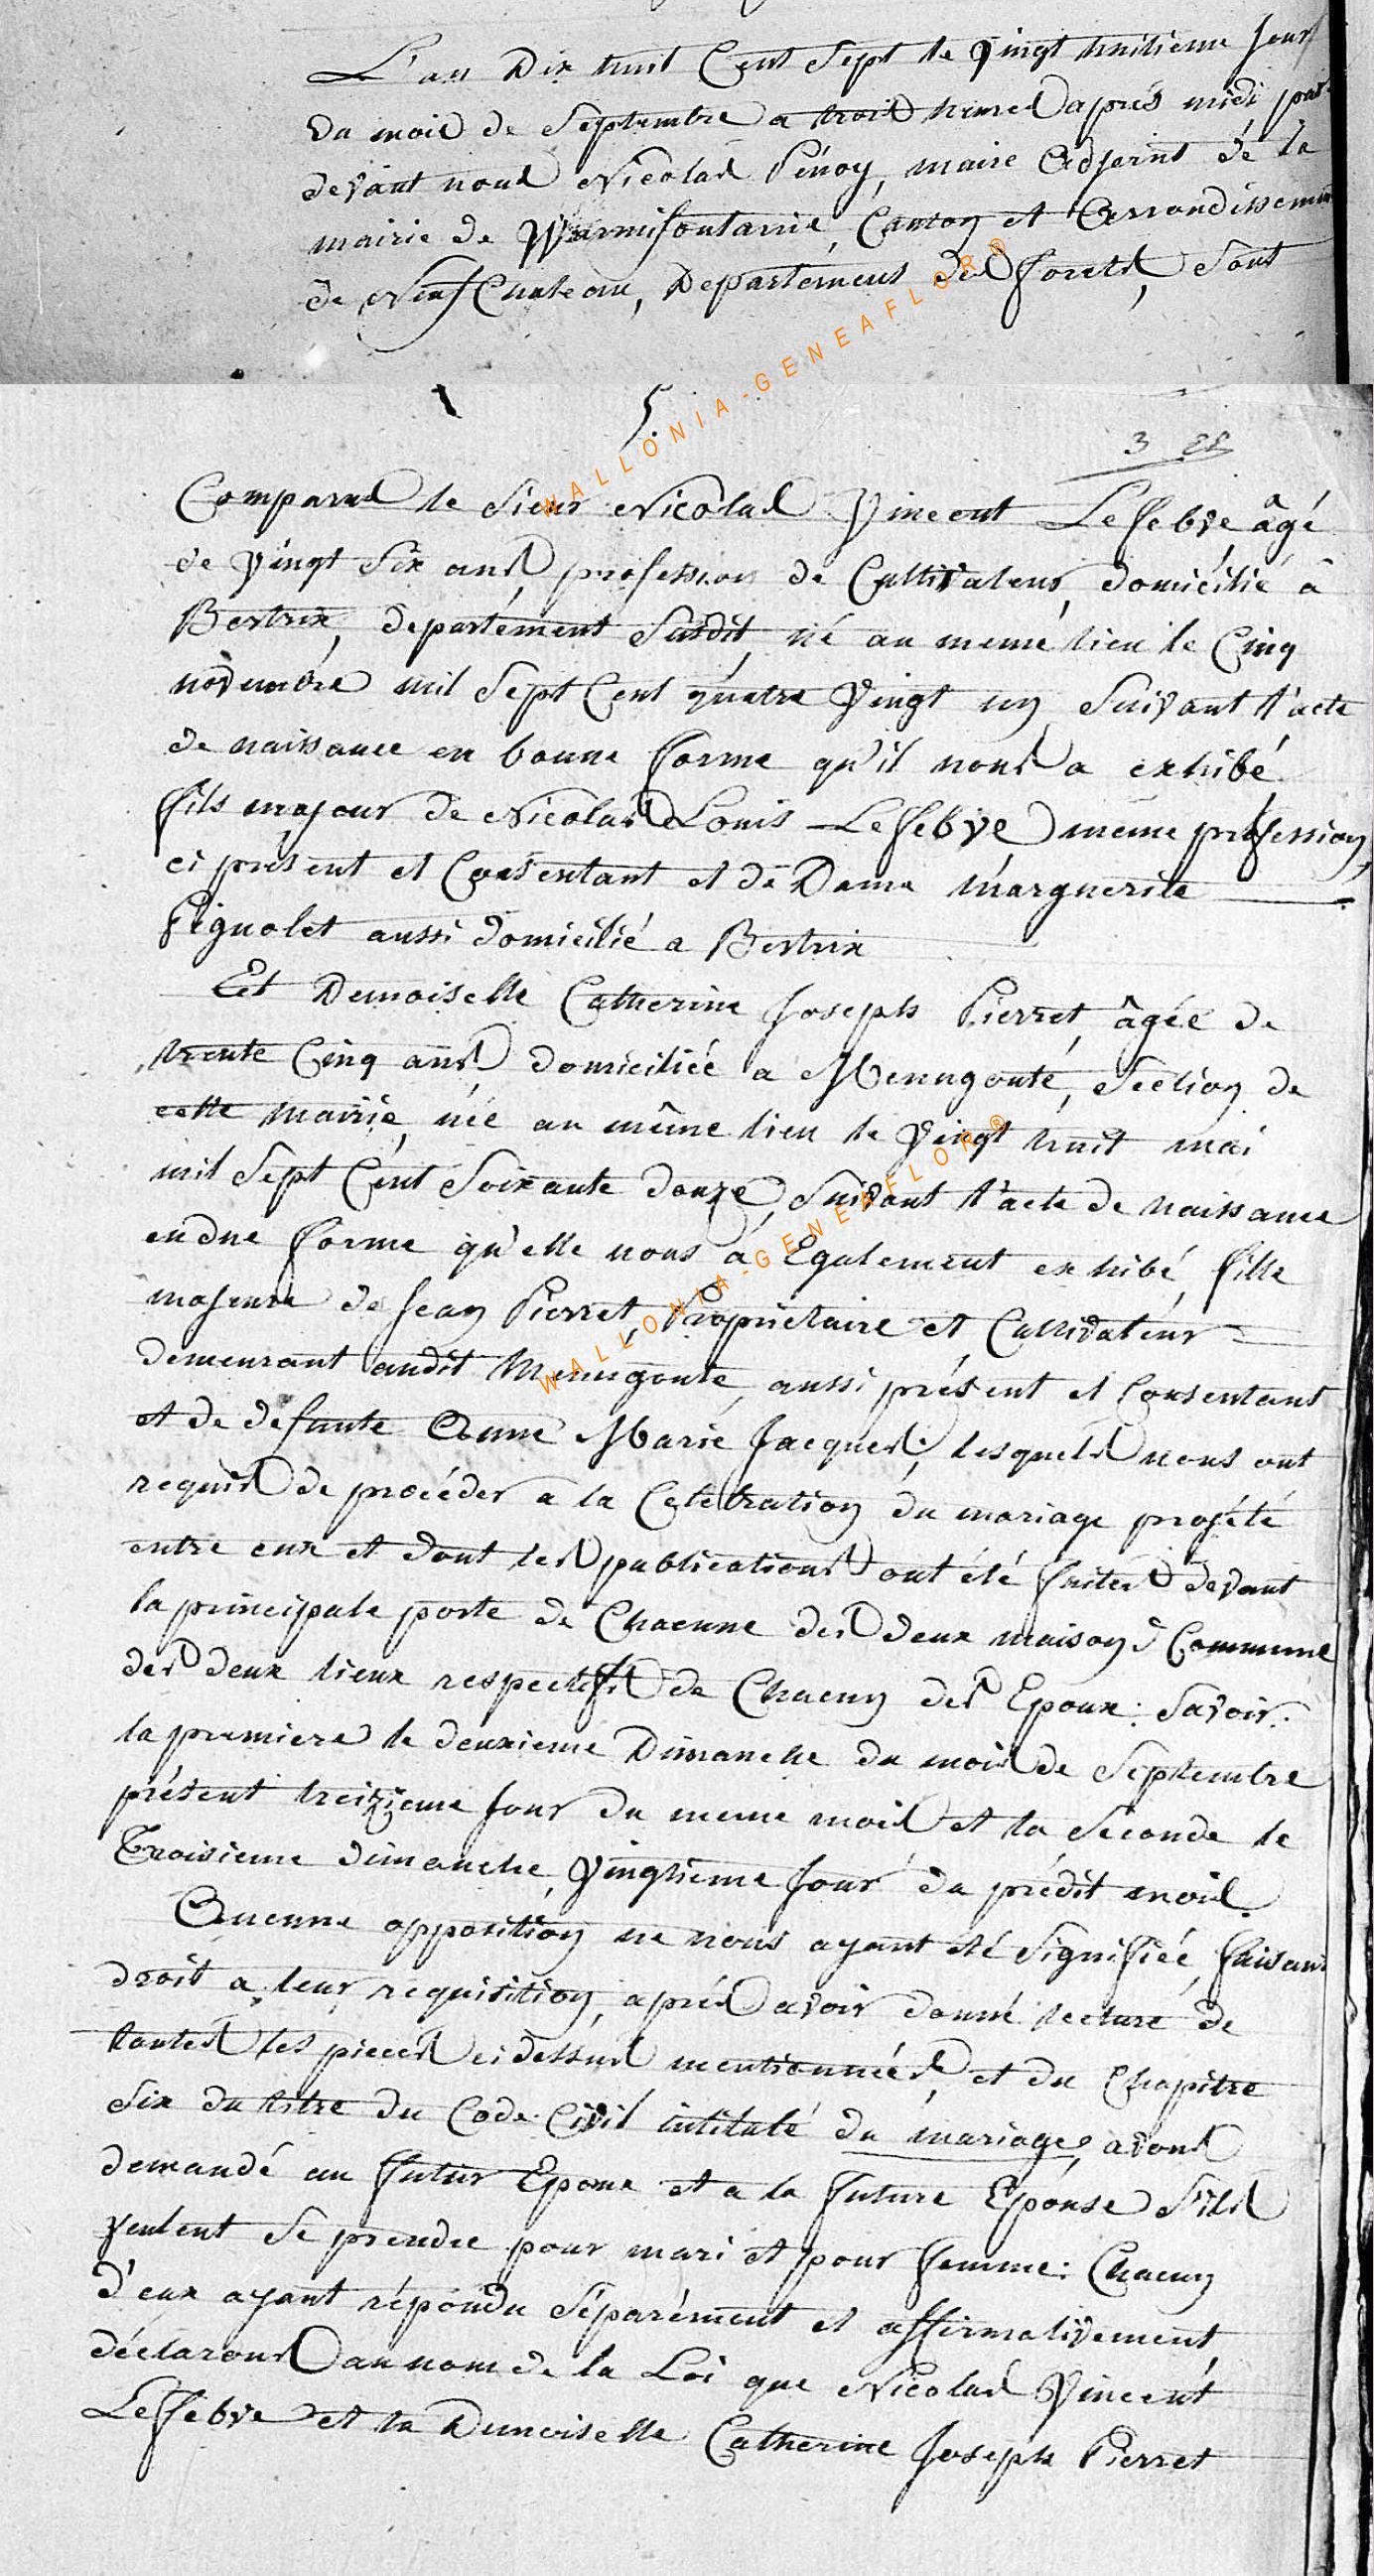 L'an Dix huit Cent Sept le Vingt huitieme Jour
du mois de Septembre a trois heures après midi par
devant nous Nicolas Pénoy, maire Adjoint dé la
mairie de Warmifontaine, Canton et Arrondissement
de Neufchateau, Departément des forets, Sont
5.
3 88
Comparus le Sieur Nicolas Vincent Lefebve âgé
de Vingt Six ans, profession de Cultivateur, domicilié à
Bertrix, departément Susdit, né au meme lieu le Cinq
novembre mil Sept Cent quatre Vingt un, Suivant l'acte
de naissance en bonne forme qu'il nous a exhibé,
fils majeur de Nicolas Louis Lefebve même profession,
ci présent et Consentant et de Dame Marguerite
Pignolet aussi domicilié a Bertrix
Et Demoiselle Catherine Joseph Pierret, âgée de
trente Cinq ans domiciliée a Menugoute, Section de
cette mairie, née au même lieu le Vingt huit mai
mil Sept Cent Soixante douze, Suivant l'acte de naissance
en due forme qu'elle nous a Egalement exhibé, fille
majeure de Jean Pierret, Proprietaire et Cultivateur
demeurant audit Menugoute, aussi présent et Consentant
et de defunte Anne Marie Jacques; lesquels nous ont
requis de procéder a la Celebration du mariage projété
entre eux et dont les publications ont été faites devant
la principale porte de Chacune des deux maisons Commune
des deux lieux respectifs de Chacun des Epoux: Savoir:
la premiere le deuxieme Dimanche du mois de Septembre
présent treizieme Jour du meme mois et la Seconde le
Troisieme dimanche, Vingtieme Jour du prédit mois.
Aucune opposition ne nous ayant été Signifiée, faisant
droit a leur requisition, après avoir donné lecture de
toutes les pieces ci dessus mentionnées, et du Chapitre
Six du titre du Code Civil intitulé du mariage, avons
demandé au futur Epoux et a la future Epouse S'ils
Veulent Se prendre pour mari et pour femme: Chacun
d'eux ayant répondu Séparément et affirmativement,
déclarons au nom de la Loi que Nicolas Vincent
Lefebve et la Demoiselle Catherine Joseph Pierret
WALLONIA-GENEAFLOR®
WALLONIA-GENEAFLOR®